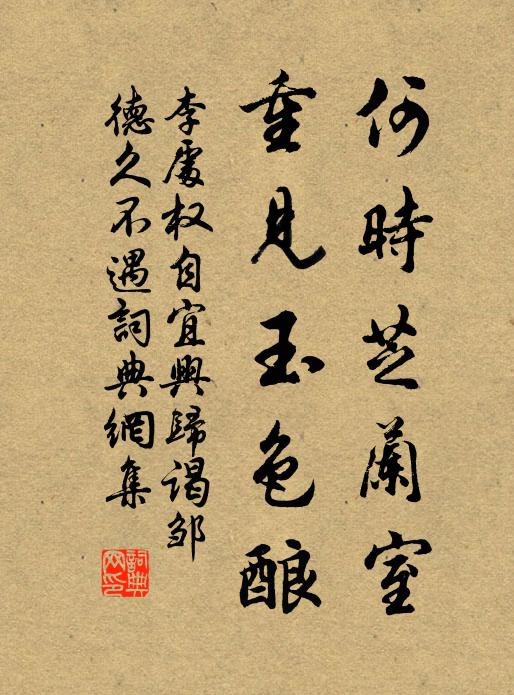 何時芝蘭室
重見玉色酿
李處权自宜興歸謁邹
德久不遇詞典網集
詞典网印